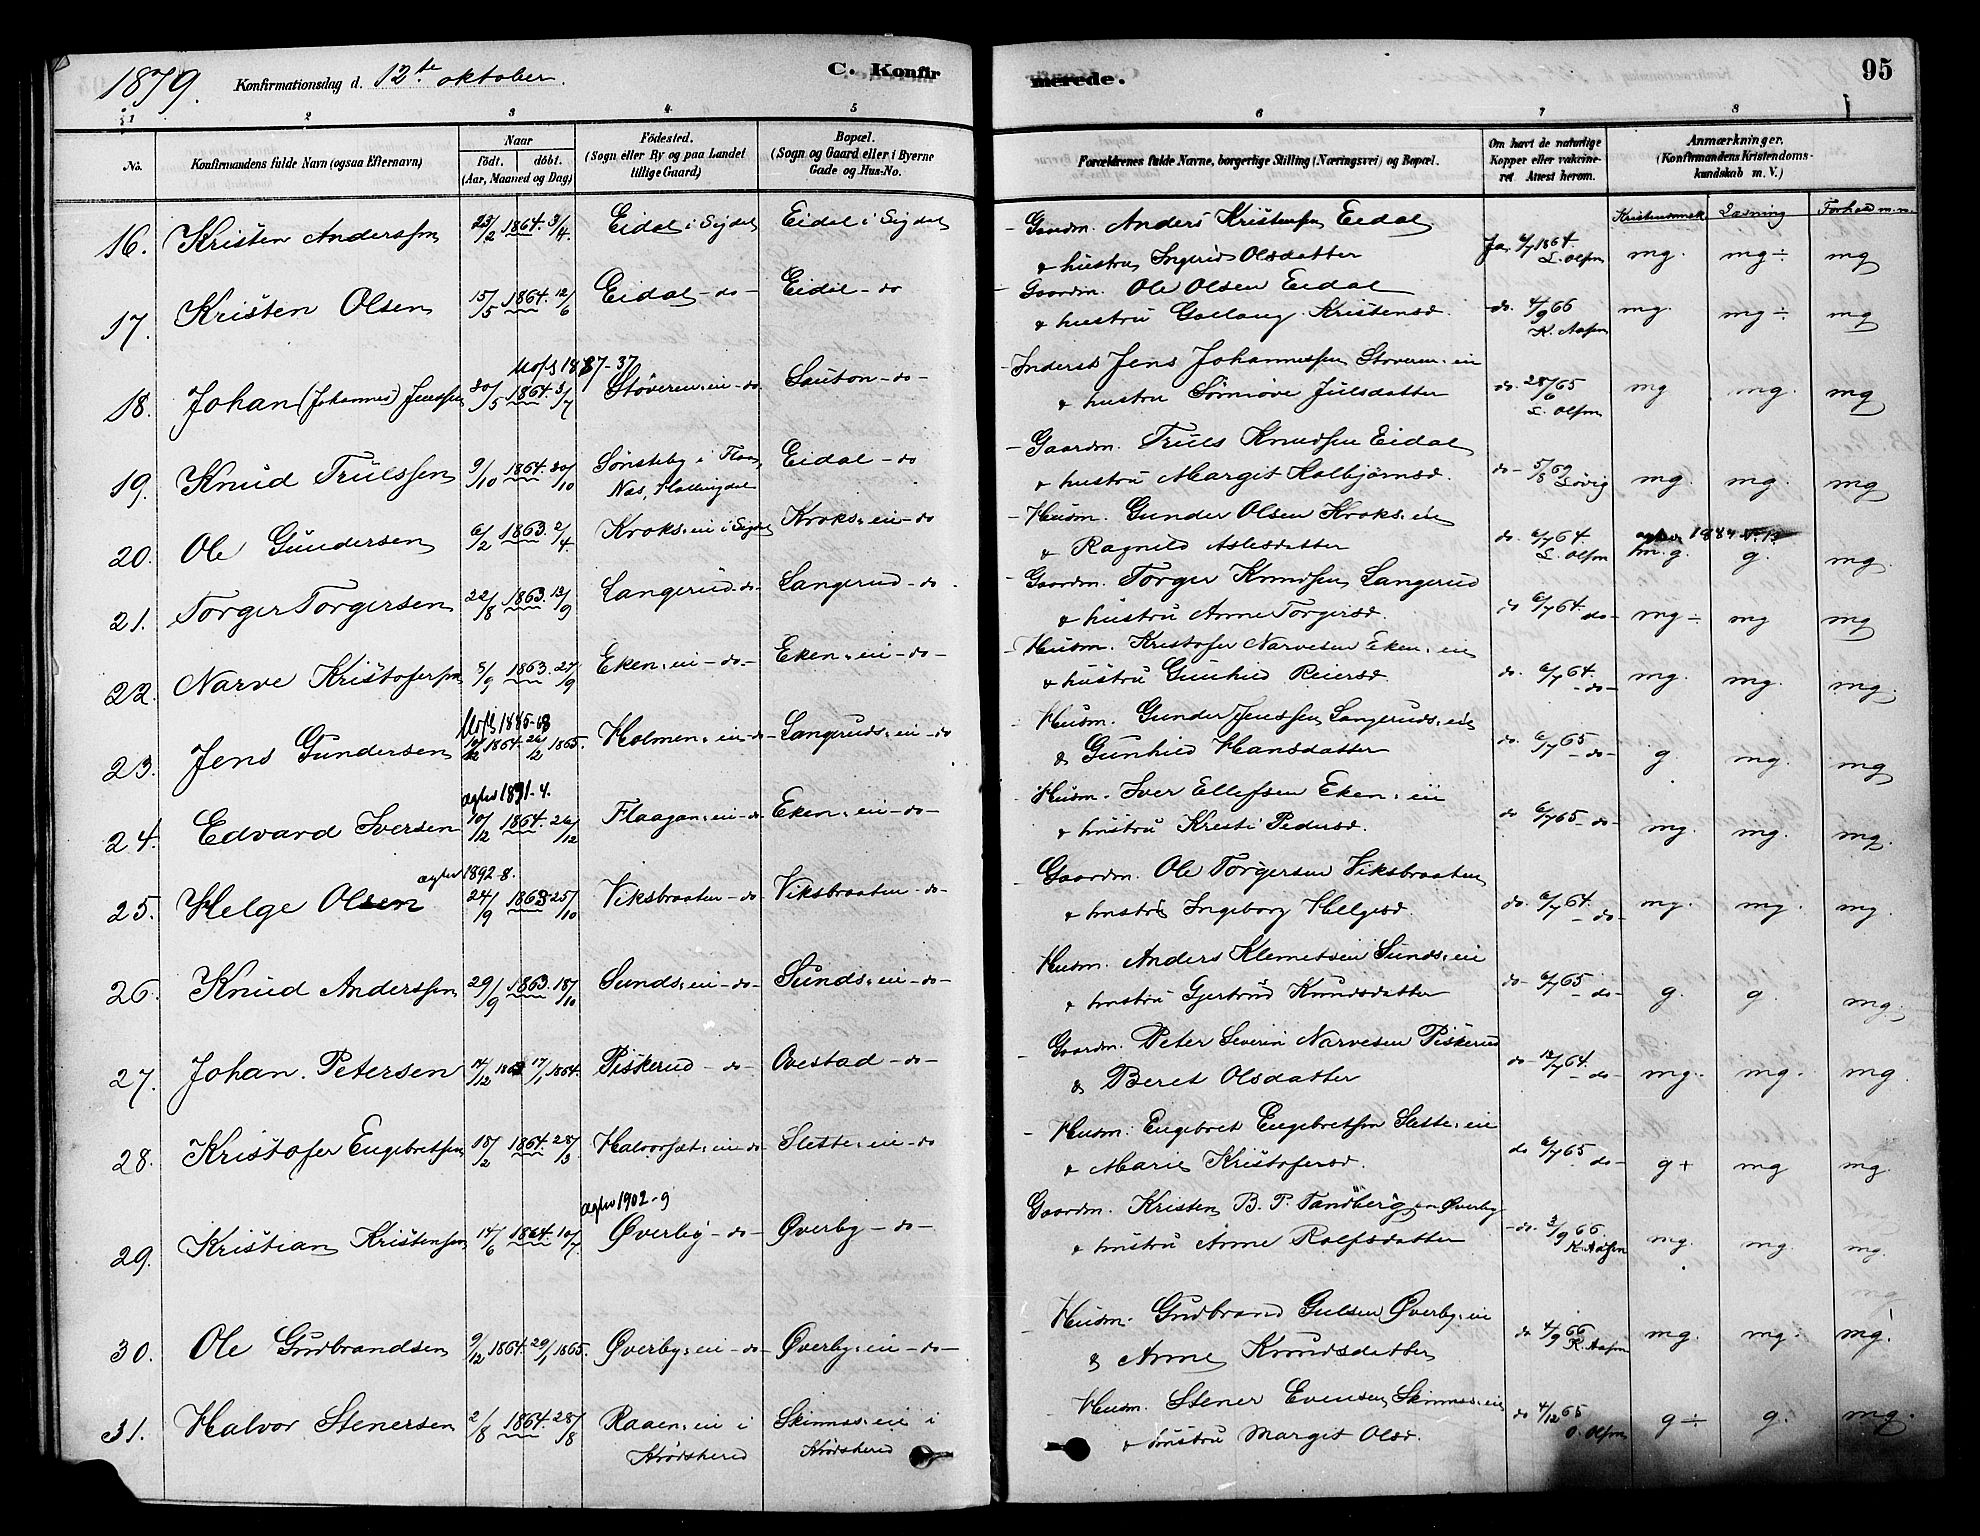 1879. Konfirmationsdag d. 12te oktober. C. Konfir
merede. 95
1 2 3 4 5
6 7 8
No. Konfirmandens fulde Navn (ogsaa Efternavn) Naar født. døbt. (Aar, Maaned og Dag) Fødested. (Sogn eller By og paa Landet tillige Gaard) Bopæl. (Sogn og Gaard eller i Byerne Gade og Hus-No.
Forældrenes fulde Navne, borgerlige Stilling (Næringsvei) og Bopæl. Om havt de naturlige Kopper eller vakcineret Attest herom. Anmærkninger. (Konfirmandens Kristendomskundskab m. V.)
Kristendomsk Læsning Forhold m.m.
16. Kristen Anderssen 23/2 1864. 3/4. Eidal i Sigdal Eidal i Sigdal
- Gaardm. Anders Kristensen Eidal
& hustru Ingrid Olsdatter Ja. 6/7 1864. L. Olsen mg. mg÷ mg
17. Kristen Olsen 15/5 1864. 12/6 Eidal -do- Eidal -do
- Gaardm. Ole Olsen Eidal
& hustru Gollaug Kristensd. do. 4/9 66 K. Aasen mg. mg÷ mg
Uofs 1887-37
18. Johan (Johannes) Jenssen 30/5 1864. 3/7 Støveren,ei -do Sauton -do-
- Inderst Jens Johannessen Støveren,ei
& hustru Sørniøve Julsdatter do. 28/6 65 L. Olsen mg mg. mg
19. Knud Trulssen 9/10 1864. 30/10 Sønsteby i Flaa, Nas, Hallingdal Eidal -do
- Gaardm. Truls Knudsen Eidal
& hustru Margit Kolbjørnsd. do- 5/8 69 Løvig mg. mg. mg
20. Ole Gundersen 6/2 1863. 2/4. Kroks,ei i Sigdal Kroks,ei -do
- Husm. Gunder Olsen Kroks,ei
& Ragnild Aslesdatter do. 6/7 64. L. Olsen 1884 mg g. mg.
21. Torger Torgersen 22/8 1863. 13/9 Langerud -do- Langerud -do
- Gaardm. Torger Knudsen Langerud
& hustru Anne Torgersd. do 6/7 64. do- mg÷ mg mg
22. Narve Kristofersen 5/9 1863. 27/9 Eken,ei -do- Eken,ei -do-
- Husm. Kristofer Narvesen Eken,ei
& hustru Gunhild Reiersd. do. 6/7 64. -do- mg. mg. mg.
Uofs 1885-68
23. Jens Gundersen 1864. 26/2 1865. Holmen,ei -do- Langeruds,ei -do
- Husm. Gunder Jenssen Langeruds,ei
& Gunhild Hansdatter do. 6/7 65 -do- g. mg. mg
ægtev 1891-4.
24. Edvard Iversen 10/12 1864. 26/12 Flaagan,ei -do Eken,ei -do-
- Husm. Iver Ellefsen Eken,ei
& hustru Kresti Pedersd. do 6/7 65 -do- mg. mg. mg.
ægtev 1892-8.
25. Helge Olsen 24/9 1863 25/10 Viksbraaten -do Viksbraaten -do-
- Gaardm. Ole Torgersen Viksbraaten
& hustru Ingeborg Helgesd. do. 6/7 64. -do- mg. mg. mg.
26. Knud Anderssen 29/9 1863. 18/10 Sunds,ei -do- Sunds,ei -do-
Husm. Anders Klemetsen Sunds,ei
& hustru Gjertrud Knudsdatter do- 6/7 65 -do- g. g. mg.
27. Johan Petersen 14/12 1863 17/1 1864. Piskerud -do- Ovestad -do-
- Gaardm. Peter Severin Narvesen Piskerud
& Beret Olsdatter do 12/7 64. -do- mg. mg. mg.
28. Kristofer Engebretsen 18/2 1864. 28/3 Halvorsæt,ei -do- Slette,ei -do
- Husm. Engebret Engebretsen Slette,ei
& Marie Kristofersd. do 6/7 65 do- g+ mg mg.
ægtev 1902-9
29. Kristian Kristensen 14/6 1864 10/7 Øverby -do- Øverby -do-
Gaardm. Kristen B. P. Tandberg Øverby
& hustru Anne Rolfsdatter -do. 3/9 66. K. Aasen mg. mg. mg.
30. Ole Gudbrandsen 9/12 1864. 29/1 1865. Øverby,ei -do- Øverby,ei -do-
Husm. Gudbrand Gulsen Øverby,ei
& Anne Knudsdatter do 4/9 66 K. Aasen mg. mg. mg.
31. Halvor Stenersen 2/8 1864. 28/8 Raaen,ei i Krødsherred Skinnes,ei i Krødsherred
Husm. Stener Evensen Skinnes,ei
& hustru Margit Olsd. do 4/12 65 O. Olsen g÷ g. mg.